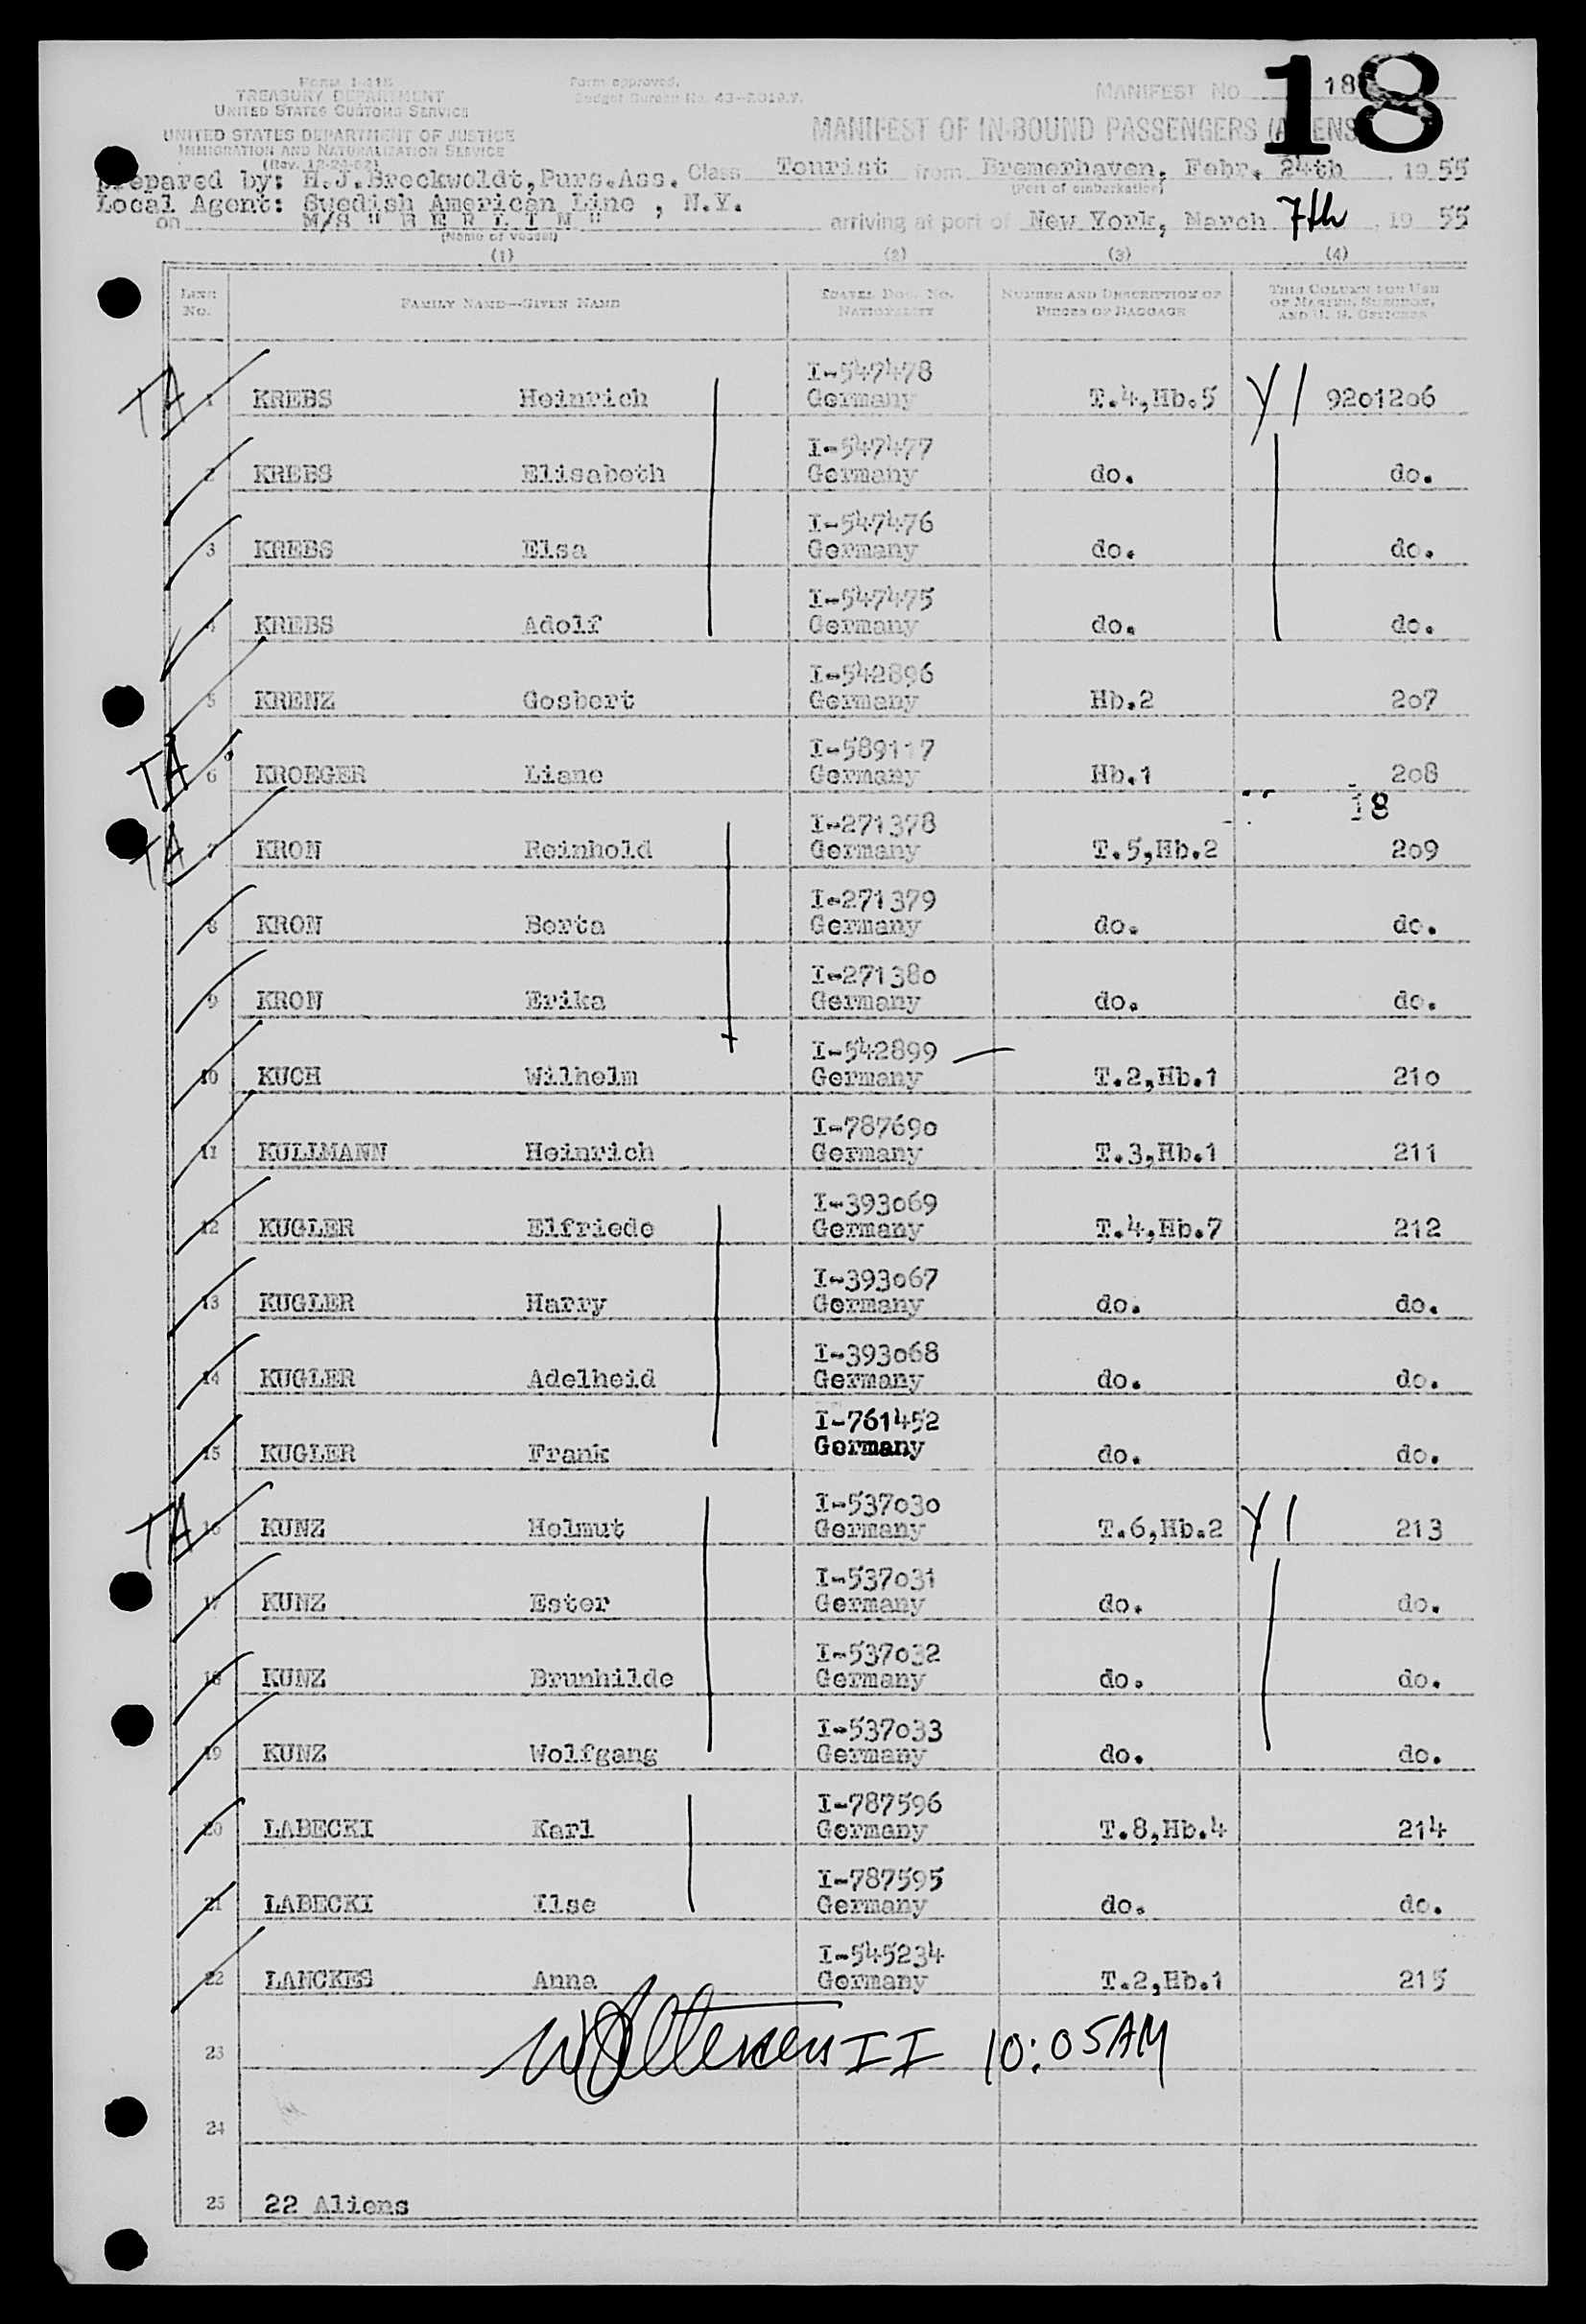 18
Form I-418
TREASURY DEPARTMENT
UNITED STATES CUSTOMS SERVICE
UNITED STATES DEPARTMENT OF JUSTICE
IMMIGRATION AND NATURALIZATION SERVICE
(Rev. 12-24-52)
Form approved.
Budget Bureau No. 43-R019.7.
MANIFEST NO 18
MANIFEST OF IN-BOUND PASSENGERS (ALIENS)
prepared by: H.J.Brockwoldt,Purs.Ass. Class Tourist from Bremerhaven, Febr. 24th 1955
(Port of embarkation)
Local Agent: Swedish American Line , N.Y.
on M/S " B E R L I N " arriving at port of New York, March 7th , 19 55
(Name of vessel)
(1) (2) (3) (4)
LINE NO. FAMILY NAME—GIVEN NAME TRAVEL DOC. NO. NATIONALITY NUMBER AND DESCRIPTION OF PIECES OF BAGGAGE THIS COLUMN FOR USE OF MASTER, SURGEON, AND U. S. OFFICERS
I-547478
TA 1 KREBS Heinrich Germany T.4,Hb.5 Y | 9201206
I-547477
2 KREBS Elisabeth Germany do. do.
I-547476
3 KREBS Elsa Germany do. do.
I-547475
4 KREBS Adolf Germany do. do.
I-542896
5 KRENZ Gosbert Germany Hb.2 207
I-589117
TA 6 KROEGER Liane Germany Hb.1 208
18
I-271378
TA 7 KRON Reinhold Germany T.5,Hb.2 209
I-271379
8 KRON Berta Germany do. do.
I-271380
9 KRON Erika Germany do. do.
I-542899
10 KUCH Wilhelm Germany T.2,Hb.1 210
I-787690
11 KULLMANN Heinrich Germany T.3,Hb.1 211
I-393069
12 KUGLER Elfriede Germany T.4,Hb.7 212
I-393067
13 KUGLER Harry Germany do. do.
I-393068
14 KUGLER Adelheid Germany do. do.
I-761452
15 KUGLER Frank Germany do. do.
I-537030
TA 16 KUNZ Helmut Germany T.6,Hb.2 Y | 213
I-537031
17 KUNZ Ester Germany do. do.
I-537032
18 KUNZ Brunhilde Germany do. do.
I-537033
19 KUNZ Wolfgang Germany do. do.
I-787596
20 LABECKI Karl Germany T.8,Hb.4 214
I-787595
21 LABECKI Ilse Germany do. do.
I-545234
22 LANCKES Anna Germany T.2,Hb.1 215
23 II 10:05AM
24
25 22 Aliens